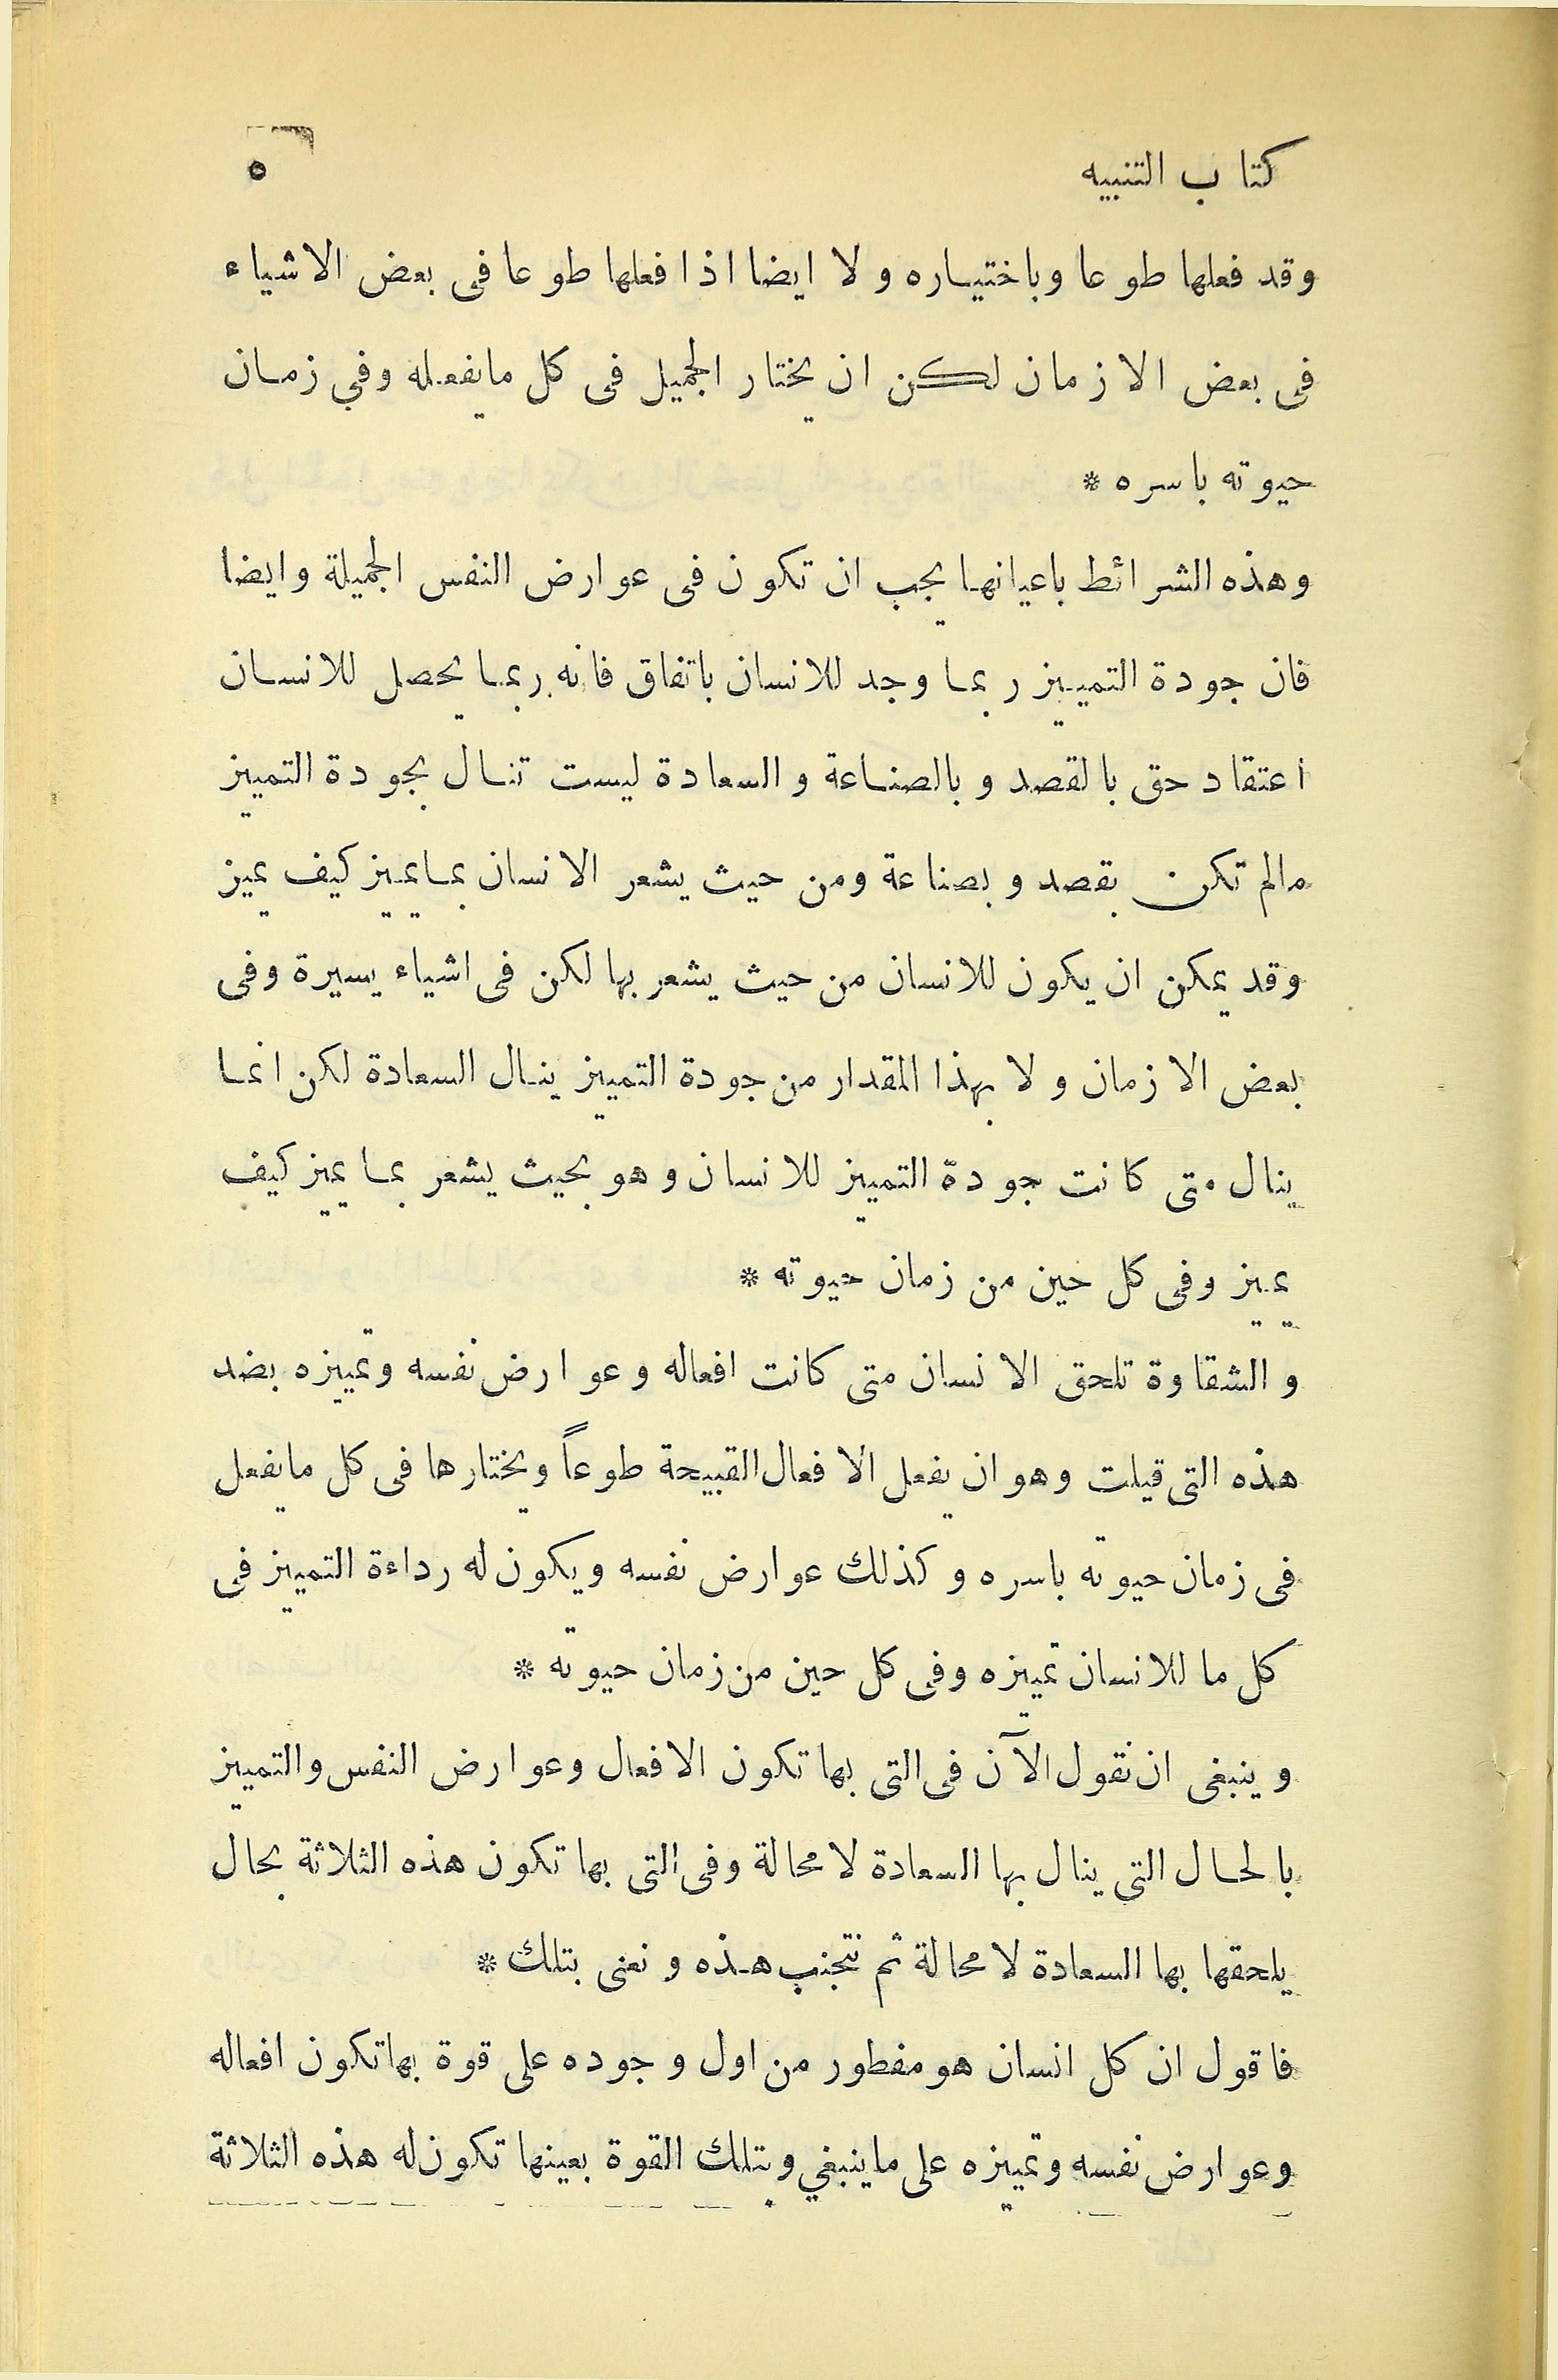 كتاب التنبيه ٥
وقد فعلها طوعا وباختياره ولا ايضا اذا فعلها طوعا فى بعض الاشياء
فى بعض الازمان لكن ان يختار الجميل فى كل مايفعله وفي زمان
حيوته باسره *
وهذه الشرائط باعيانها يجب ان تكون فى عوارض النفس الجميلة وايضا
فان جودة التمييز ربما وجد للانسان باتفاق فانه ربما يحصل للانسان
اعتقاد حق بالقصد وبالصناعة والسعادة ليست تنال بجودة التمييز
مالم تكن بقصد وبصناعة ومن حيث يشعر الانسان بمايميز كيف يميز
وقد يمكن ان يكون للانسان من حيث يشعر بها لكن فى اشياء يسيرة وفى
بعض الازمان ولا بهذا المقدار من جودة التمييز ينال السعادة لكن انما
ينال متى كانت جودة التمييز للانسان وهو بحيث يشعر بما يميز كيف
يميز وفى كل حين من زمان حيوته *
والشقاوة تلحق الانسان متى كانت افعاله وعوارض نفسه وتمييزه بضد
هذه التى قيلت وهو ان يفعل الافعال القبيحة طوعاً ويختارها فى كل مايفعل
فى زمان حيوته باسره وكذلك عوارض نفسه ويكون له رداءة التمييز فى
كل ما للانسان تمييزه وفى كل حين من زمان حيوته *
وينبغى ان نقول الآن فى التى بها تكون الافعال وعوارض النفس والتمييز
بالحال التى ينال بها السعادة لامحالة وفى التى بها تكون هذه الثلاثة بحال
يلحقها بها السعادة لامحالة ثم نتجنب هذه ونعنى بتلك *
فاقول ان كل انسان هو مفطور من اول وجوده على قوة بهاتكون افعاله
وعوارض نفسه وتمييزه على ماينبغي وبتلك القوة بعينها تكون له هذه الثلاثة